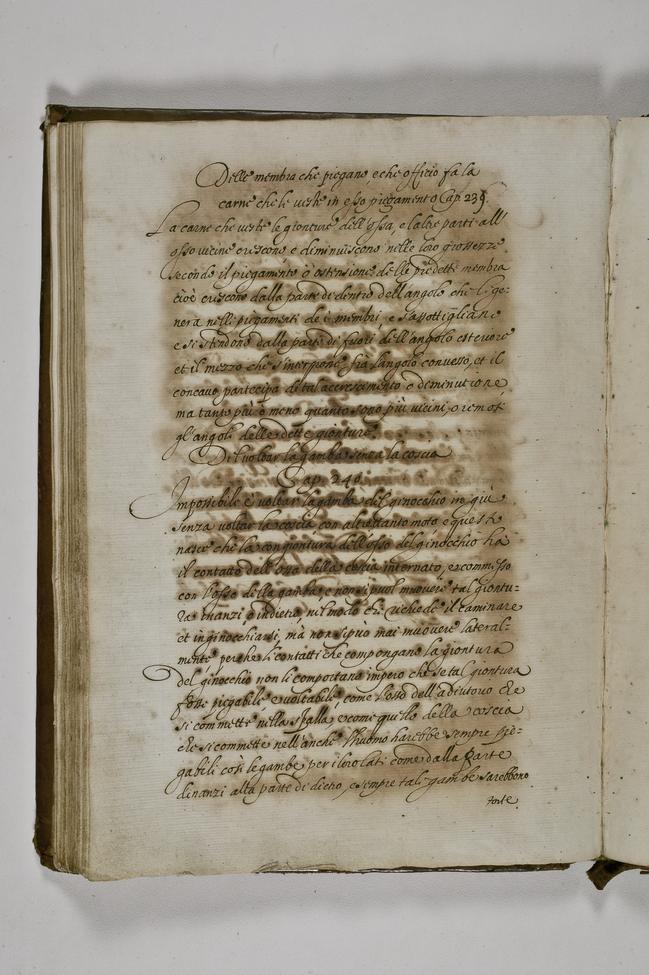 Delle membra che piegano, e che officio fa la
carne che le veste in esso piegamento Cap. 239.
La carne che veste le gionture dell'ossa, e l'altre parti all'
osso vicine crescono e diminuiscono nelle loro grossezze
secondo il piegamento ò ostensione delle predette membra
cioè crescono dalla parte di dentro dell'angolo che si ge=
nera nelli piegamenti de i membri, e s'assottigliano
e si stendono dalla parte di fuori dell'angolo esteriore
et il mezzo che s'interpone frà l'angolo convesso, et il
concavo partecipa di tal accrescimento e deminutione,
ma tanto più ò meno quanto sono più vicini, o remoti
gl'angoli delle dette gionture.
Del voltar la gamba senza la coscia
Cap. 240.
Impossibile è voltar la gamba del ginocchio in giù
senza voltar la coscia con altrettanto moto e questo
nasce che la congiontura dell'osso del ginocchio ha
il contatto dell'osso della coscia internato, e commisso
con l'osso della gamba, e non si puol muovere tal giontu=
ra inanzi o indietro, nel modo che richiede il caminare
et inginocchiarsi, mà non si può mai muovere lateral=
mente, perche li contatti che compongano la giontura
del ginocchio non li comportano impero che se tal giontura
fosse piegabile e voltabile, come l'osso dell'adiutorio che
si commette nella spalla, e come quello della coscia
che si commette nell'anche l'huomo harebbe sempre pie=
gabili così le gambe per i loro lati come dalla parte
dinanzi alla parte di dietro, e sempre tali gambe sarebbono
torte.